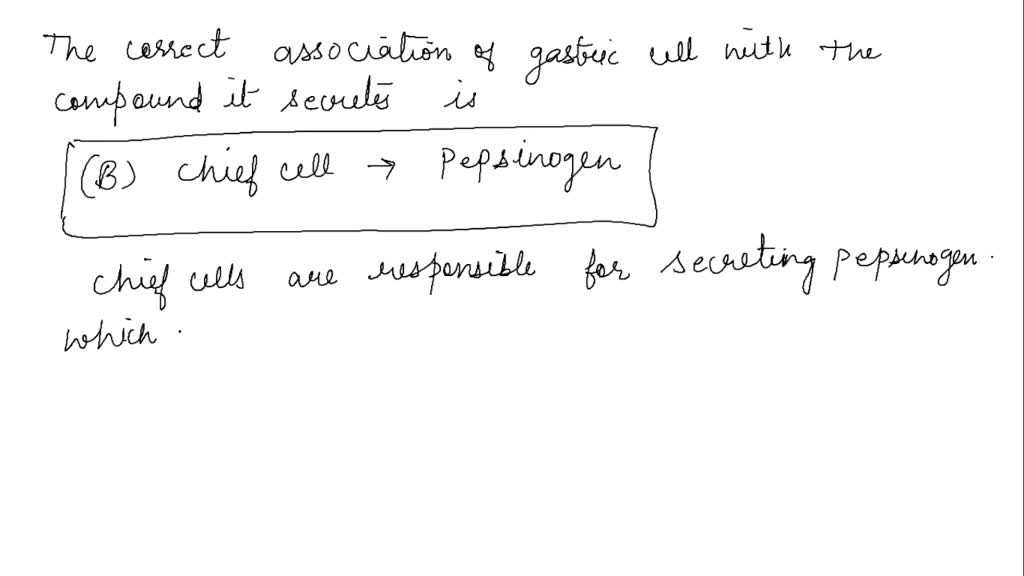 The correct association of gastric cell with the
compound it secretes is
(B) chief cell → Pepsinogen
chief cells are responsible for secreting pepsinogen.
which.